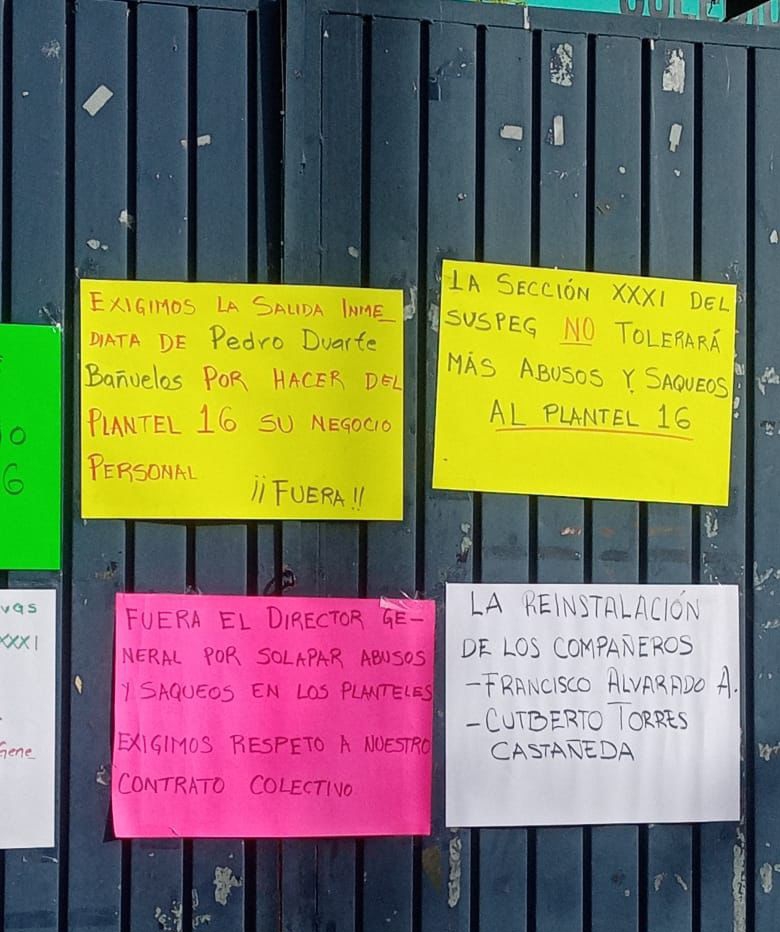 EXIGIMOS LA SALIDA INME_
DIATA DE Pedro Duarte
Bañuelos POR HACER DEL
PLANTEL 16 SU NEGOCIO
PERSONAL
¡¡FUERA!!
LA SECCIÓN XXXI DEL
SUSPEG NO TOLERARÁ
MÁS ABUSOS Y SAQUEOS
AL PLANTEL 16
6
XXXI
FUERA EL DIRECTOR GE-
NERAL POR SOLAPAR ABUSOS
Y SAQUEOS EN LOS PLANTELES
EXIGIMOS RESPETO A NUESTRO
CONTRATO COLECTIVO
LA REINSTALACIÓN
DE LOS COMPAÑEROS
-FRANCISCO ALVARADO A.
-CUTBERTO TORRES
CASTAÑEDA